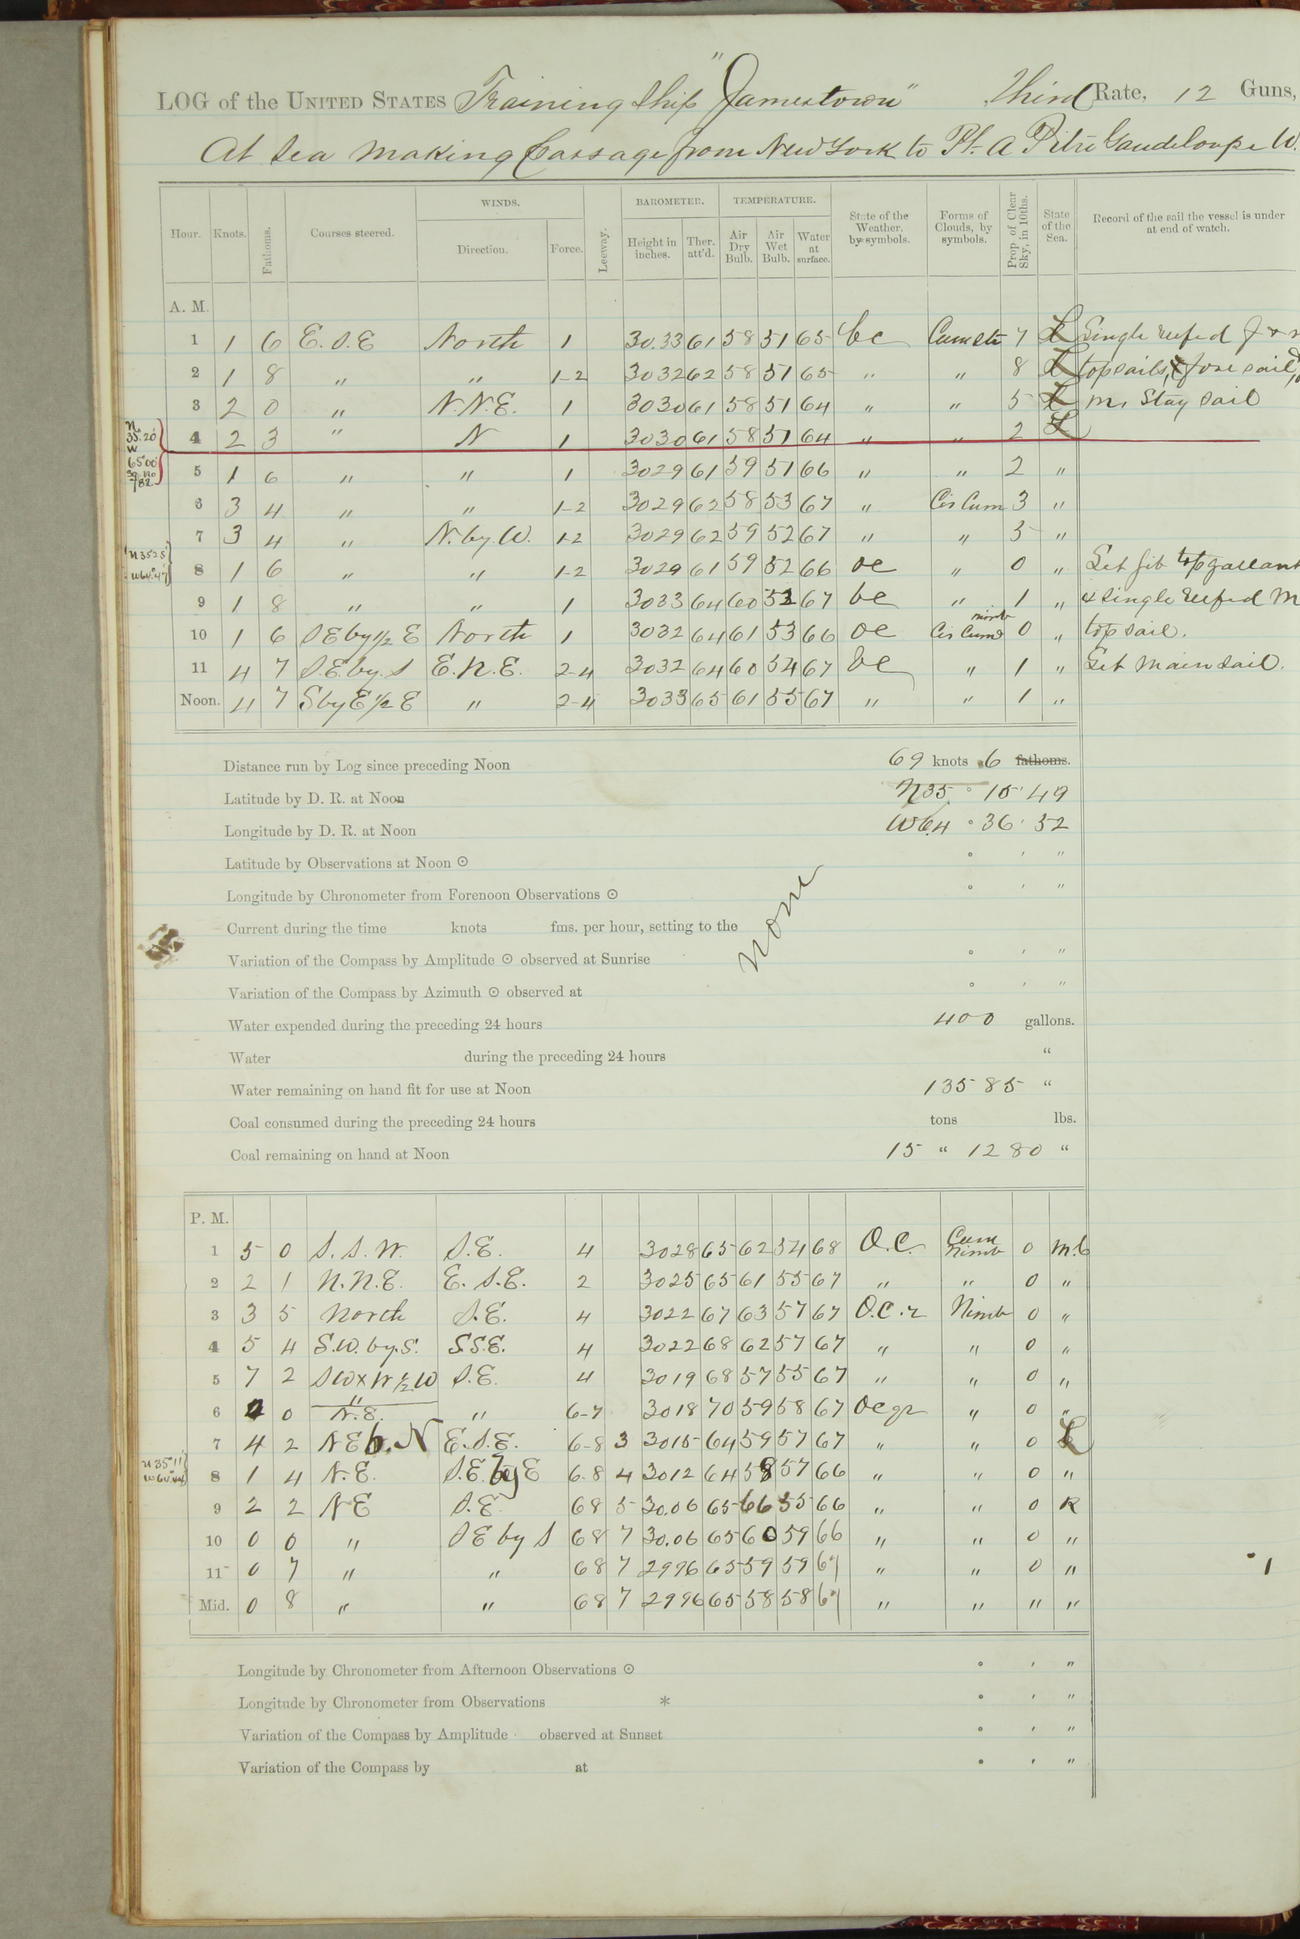 LOG of the UNITED STATES Training Ship "Jamestown" Third Rate, 12 Guns,
At Sea Making Passage from New York to Pt. A Pitre Gaudeloupe W.
Hour. Knots. Fathoms. Courses steered. WINDS. Direction. Force. Leeway. BAROMETER. Height in inches. Ther. att'd. TEMPERATURE. Air Dry Bulb. Air Wet Bulb. Water at surface. State of the Weather, by symbols. Forms of Clouds, by symbols. Prop. of Clear Sky, in 10ths. State of the Sea. Record of the sail the vessel is under at end of watch.
A. M.
1 1 6 E.S.E North 1 30.33 61 58 51 65 bc Cum str 7 L Single reefed f &
2 1 8 " " 1-2 3032 62 58 51 65 " " 8 L topsails, fore sail
3 2 0 " N.N.E. 1 3030 61 58 51 64 " " 5 L Mn Stay sail
N. 35.20' W 65°00'
4 2 3 " N 1 3030 61 58 51 64 " " 2 L
5 1 6 " " 1 3029 61 59 51 66 " " 2 "
6 3 4 " " 1-2 3029 62 58 53 67 " Cir Cum 3 "
7 3 4 " N. by W. 1-2 3029 62 59 52 67 " " 5 "
N 35 25' W 64°47'
8 1 6 " " 1-2 3029 61 59 52 66 oc " 0 " Set jib topgallant
9 1 8 " " 1 3033 64 60 53 67 bc " 1 " & single reefed M
10 1 6 SE by 1/2 E North 1 3032 64 61 53 66 oc Cir Cum nimb 0 " topsail.
11 4 7 S.E. by. S E.N.E. 2-4 3032 64 60 54 67 bc " 1 " Set Main sail.
Noon. 4 7 S by E 1/2 E " 2-4 3033 65 61 55 67 " " 1 "
Distance run by Log since preceding Noon 69 knots .6 fathoms.
Latitude by D. R. at Noon N 35 ° 15 ' 49
Longitude by D. R. at Noon W 64 ° 36 ' 52
Latitude by Observations at Noon ⊙ ° ' "
Longitude by Chronometer from Forenoon Observations ⊙ ° ' "
none
Current during the time knots fms. per hour, setting to the
Variation of the Compass by Amplitude ⊙ observed at Sunrise ° ' "
Variation of the Compass by Azimuth ⊙ observed at ° ' "
Water expended during the preceding 24 hours 400 gallons.
Water during the preceding 24 hours "
Water remaining on hand fit for use at Noon 13585 "
Coal consumed during the preceding 24 hours tons lbs.
Coal remaining on hand at Noon 15 " 1280 "
P. M.
1 5 0 S.S.W. S.E. 4 3028 65 62 54 68 O.C. Cum Nimb 0 M.L
2 2 1 N.N.E. E.S.E. 2 3025 65 61 55 67 " " 0 "
3 3 5 North S.E. 4 3022 67 63 57 67 O.C.r Nimb 0 "
4 5 4 S.W. by. S. S.S.E. 4 3022 68 62 57 67 " " 0 "
5 7 2 SW x W 1/2 W S.E. 4 3019 68 57 55 67 " " 0 "
6 0 " N.E. " 6-7 3018 70 59 58 67 Oc gr " 0 "
7 4 2 NE b. N E.S.E. 6-8 3 3015 64 59 57 67 " " 0 L
N 35° 11'
8 1 4 N.E. S.E. by E 6-8 4 3012 64 58 57 66 " " 0 "
9 2 2 NE S.E. 68 5 30.06 65 66 55 66 " " 0 R
10 0 0 " SE by S 68 7 30.06 65 60 59 66 " " 0 "
11 0 7 " " 68 7 2996 65 59 59 67 " " 0 "
Mid. 0 8 " " 68 7 2996 65 58 58 67 " " " "
Longitude by Chronometer from Afternoon Observations ⊙ ° ' "
Longitude by Chronometer from Observations * ° ' "
Variation of the Compass by Amplitude observed at Sunset ° ' "
Variation of the Compass by at ° ' "